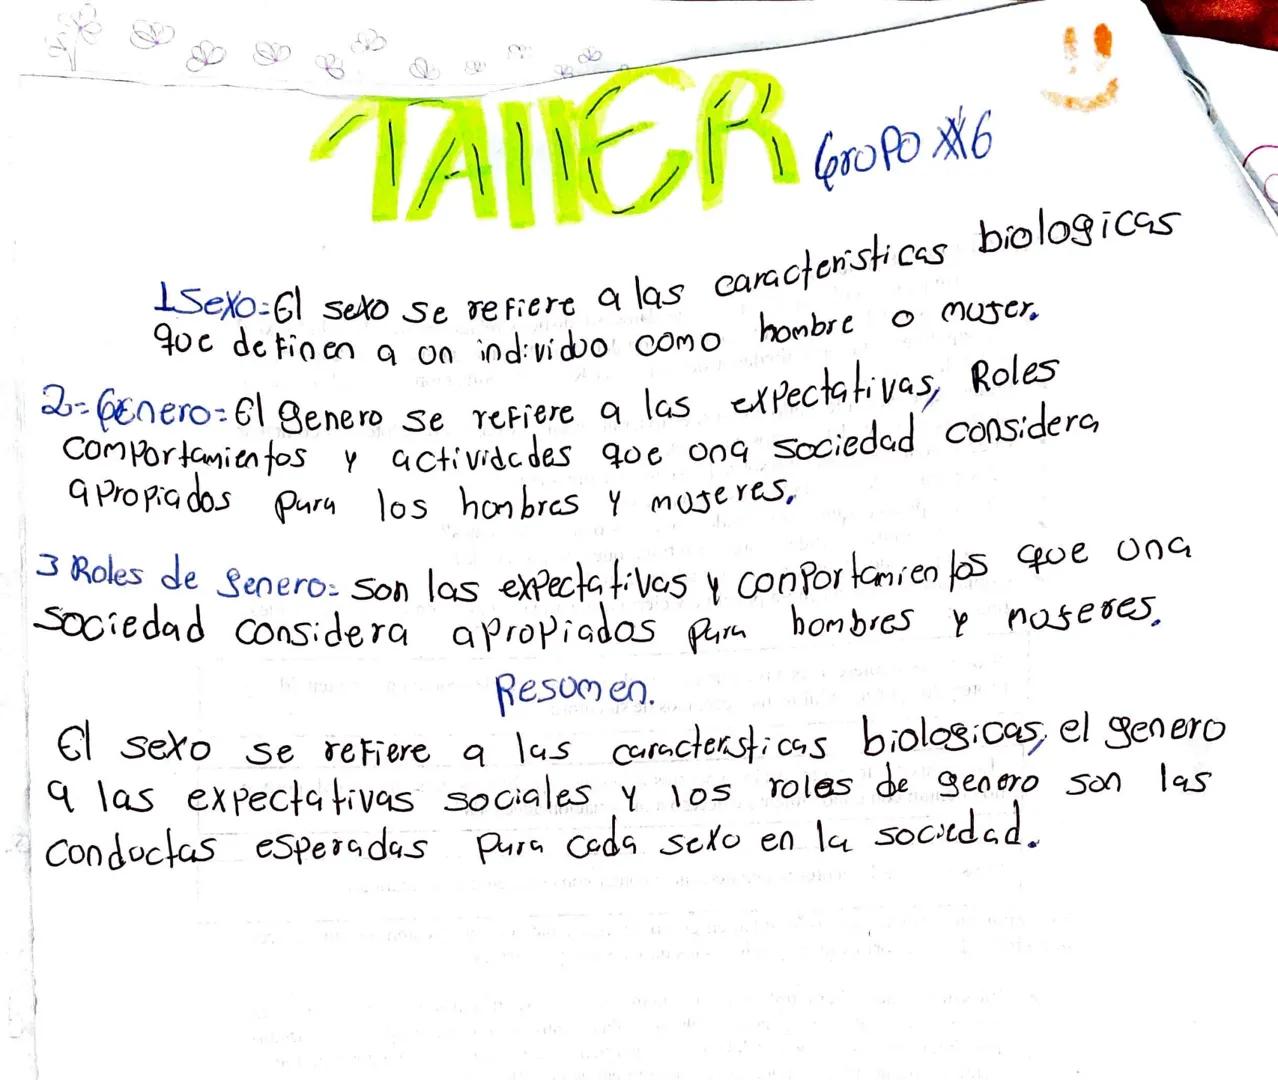 TAllER Grupo #6
1 Sexo= El sexo se refiere a las caracteristicas biologicas
que definen a un individuo como hombre o mujer.
2-Genero= El genero se refiere a las expectativas, Roles
comportamientos y actividades que una sociedad considera
apropiados para los hombres y mujeres.
3 Roles de genero= son las expectativas y conportamientos que una
sociedad considera apropiados para hombres y mujeres.
Resumen.
El sexo se refiere a las caracteristicas biologicas, el genero
a las expectativas sociales y los roles de genero son las
conductas esperadas para cada sexo en la sociedad.